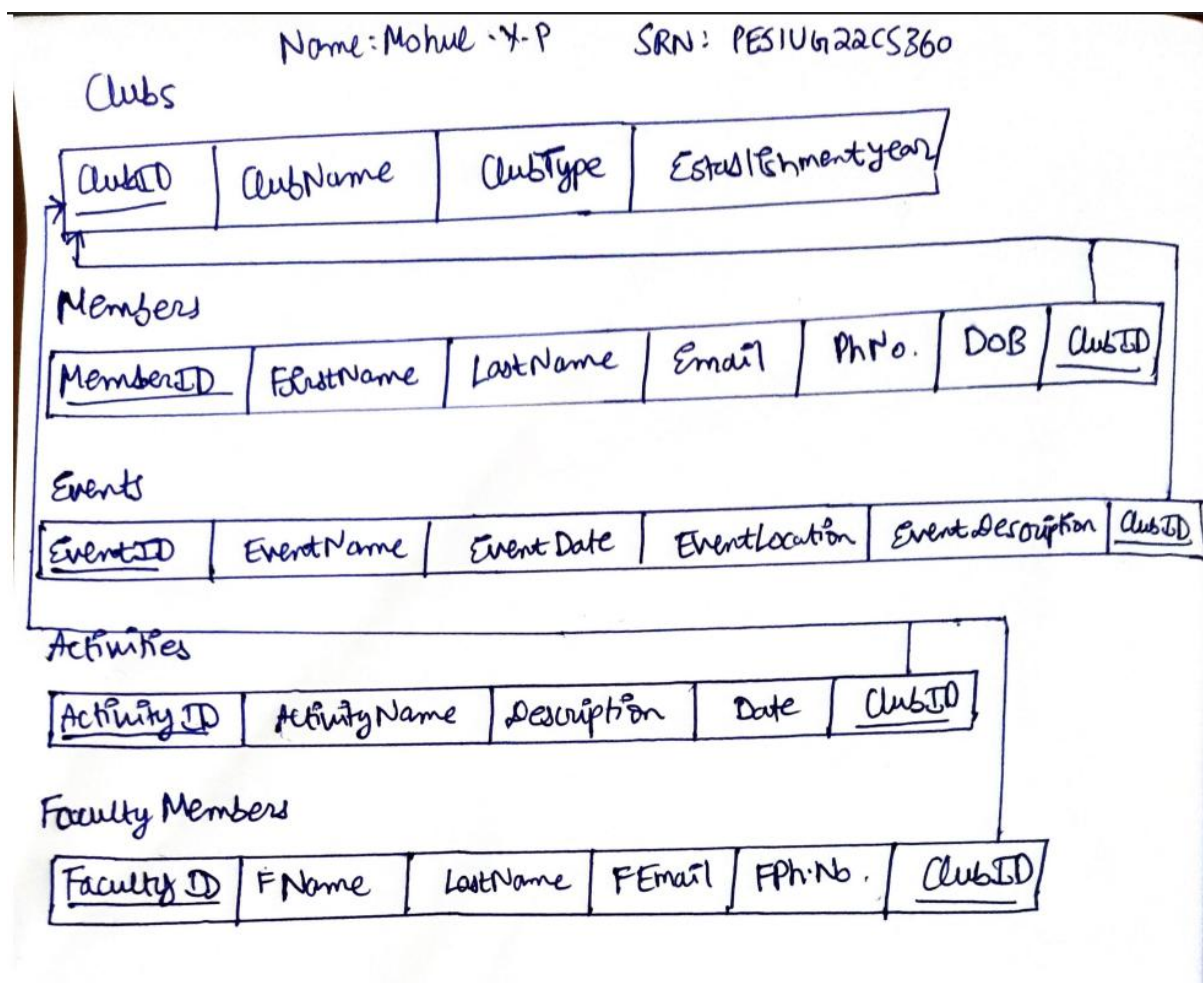 Name: Mohul . Y. P SRN: PES1UG22CS360
Clubs
ClubID ClubName ClubType Establishmentyear
Members
MemberID FirstName LastName Email PhNo. DOB ClubID
Events
EventID EventName Event Date EventLocation Event Description ClubID
Activities
Activity ID ActivityName Description Date ClubID
Faculty Members
Faculty ID FName LastName FEmail FPh.No. ClubID